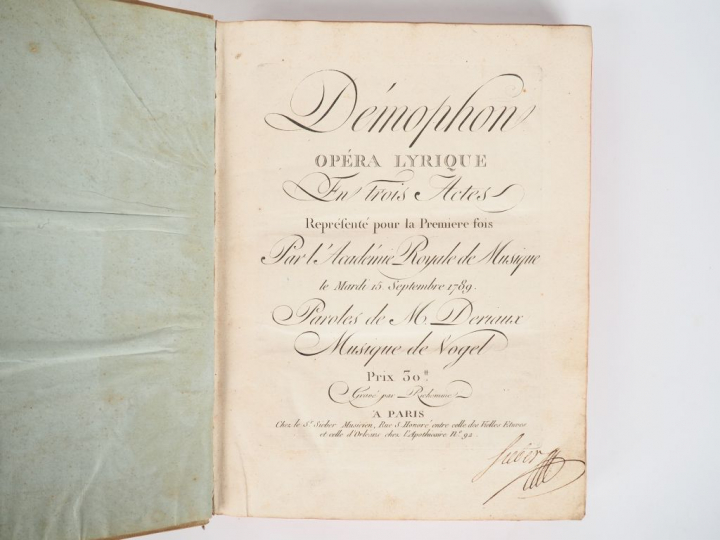 Démophon
OPÉRA LYRIQUE
En trois Actes
Repréſenté pour la Premiere fois
Par l'Académie Royale de Musique
le Mardi 15 Septembre 1789.
Paroles de M. Deriaux
Musique de Vogel
Prix 30ᵗᵗ
Gravé par Richomme
A PARIS
Chez le Sʳ Sieber Musicien, Rue S. Honoré entre celle des Vielles Etuves
et celle d'Orleans chez l'Apothicaire Nº 92.
Sieber